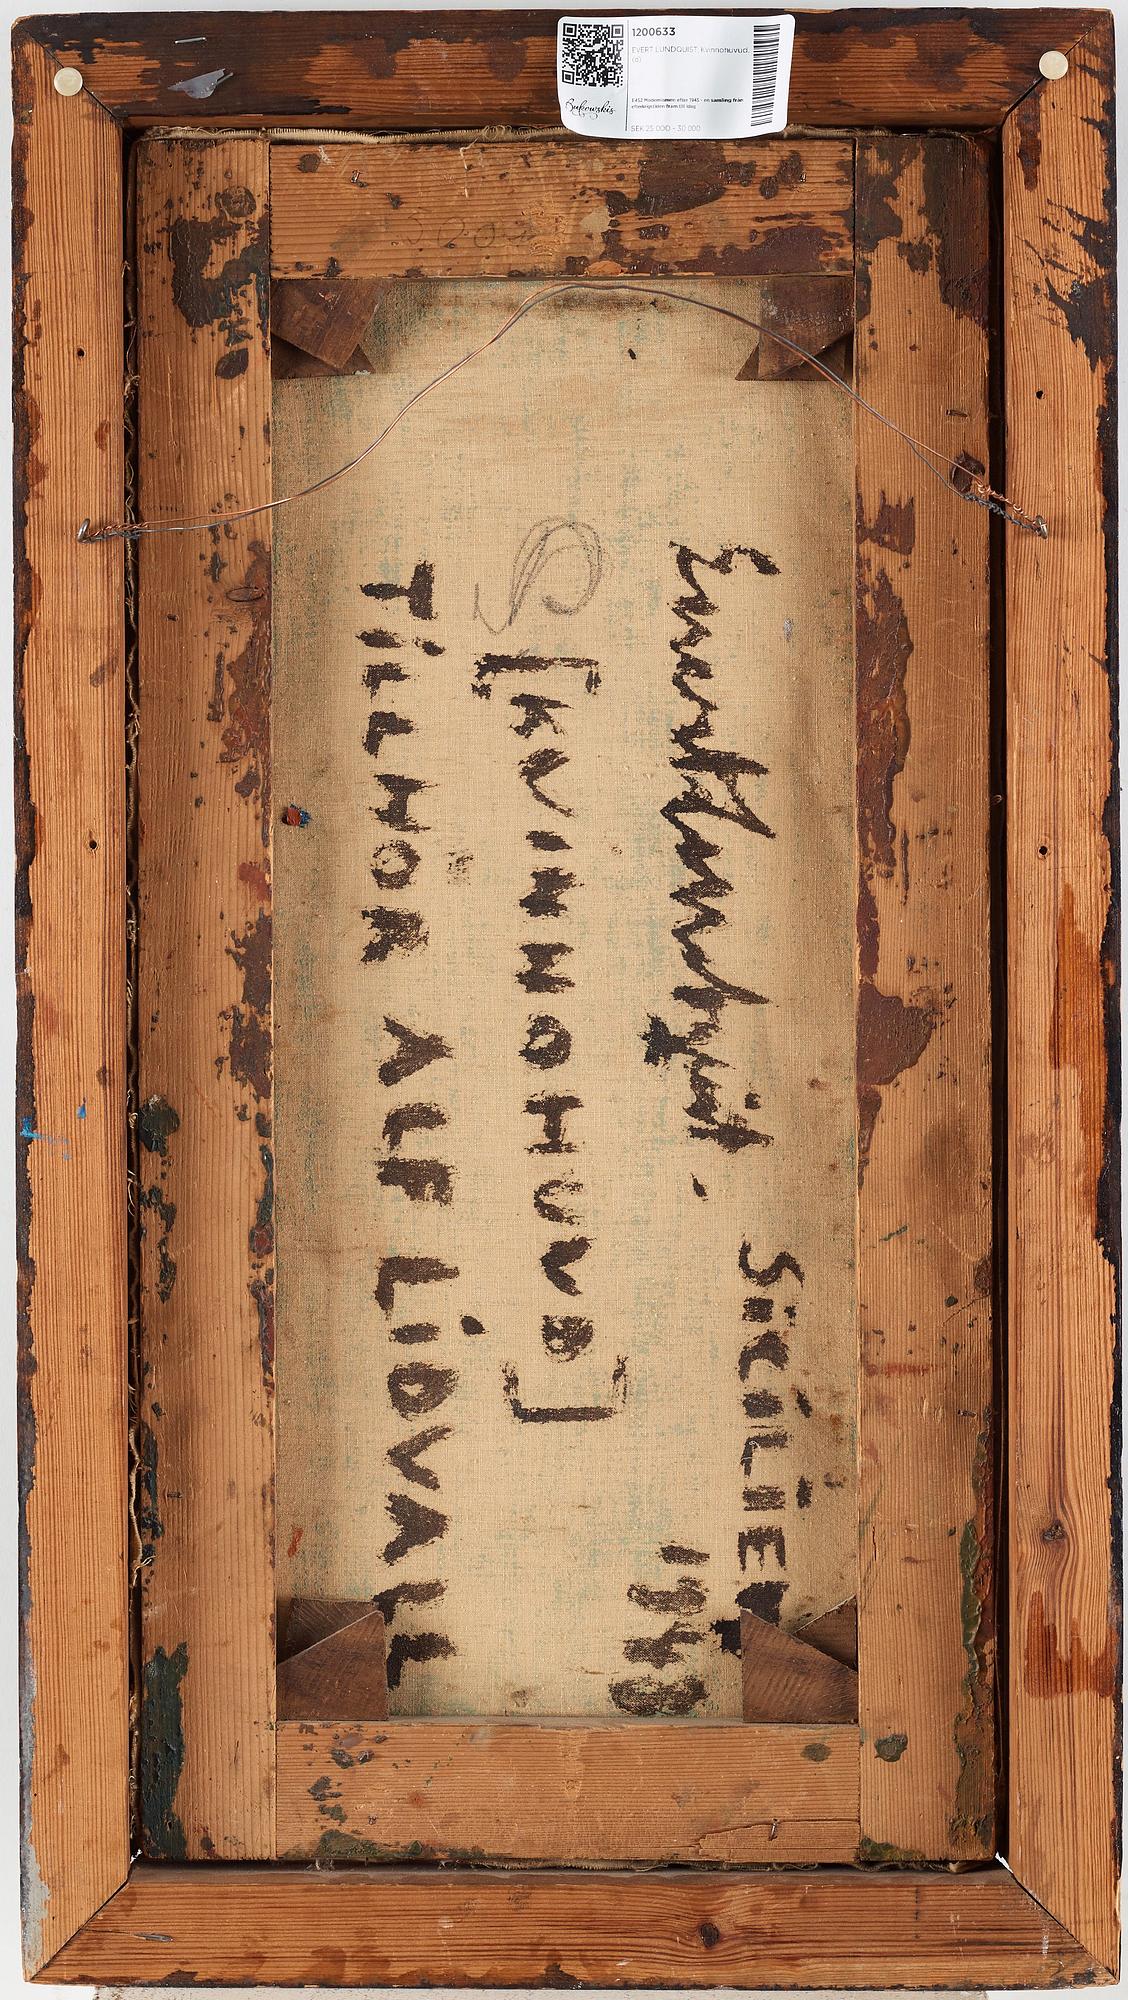 1200633
EVERT LUNDQUIST, Kvinnohuvud.
(d)
E452 Modernismen efter 1945 - en samling från
efterkrigstiden fram till idag
SEK 25 000 - 30 000
Bukowskis
Evert Lundquist.
1943
[KVINNOHUVUD]
TILLHÖR ALF LIDVALL